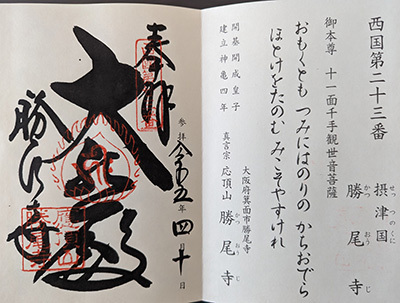 西国第二十三番
摂津国
せっつのくに
勝尾寺
かつおうじ
御本尊 十一面千手観世音菩薩
おもくとも つみにはのりの かちおでら
ほとけをたのむ みこそやすけれ
開基 開成皇子
建立 神亀四年
大阪府箕面市勝尾寺
真言宗 応頂山 勝尾寺
かつおうじ
奉拝
参拝 令和五年 四月十日
大悲殿
勝尾寺